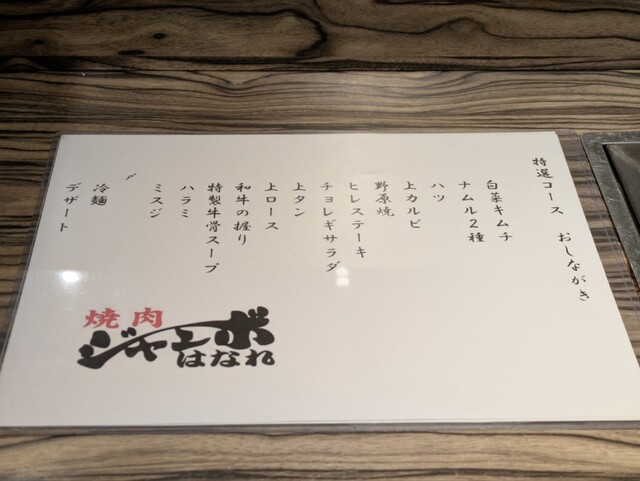 特選コース　おしながき
白菜キムチ
ナムル２種
ハツ
上カルビ
野原焼
ヒレステーキ
チョレギサラダ
上タン
上ロース
和牛の握り
特製牛骨スープ
ハラミ
ミスジ
〃
冷麺
デザート
焼肉
ジャンボ
はなれ